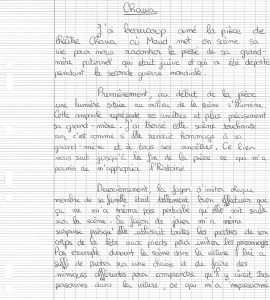 Chawa
J'ai beaucoup aimé la pièce de
théâtre Chawa où Maud met en scène sa
vie pour nous raconter le passé de sa grand-
mère paternel qui était juive et qui a été déporté
pendant la seconde guerre mondiale.
Premièrement, au début de la pièce
une lumière située au milieu de la scène s'illumine.
Cette ampoule représente ses ancêtres et plus précisement
sa grand-mère. J'ai trouvé cette scène touchante
car c'est comme si elle rendait hommage à sa
grand-mère et à tous ses ancêtres. Ce lien
nous suit jusqu'à la fin de la pièce ce qui m'a
permis de m'approprier l'histoire.
Deuxièmement, la façon d'imiter chaque
membre de sa famille était tellement bien effectuée que
ça ne m'a même pas perturbé qu'elle soit seule
sur la scène. Sa façon de jouer m'a même
surprise puisqu'elle utilisait toutes les parties de son
corps de la tête aux pieds pour imiter les personnages.
Par exemple durant la scène dans la voiture il lui a
suffi de pivoter sur une chaise et de faire des
mimiques différentes pour comprendre qu'il y avait trois
personnes dans la voiture, ce qui m'a impressionnée